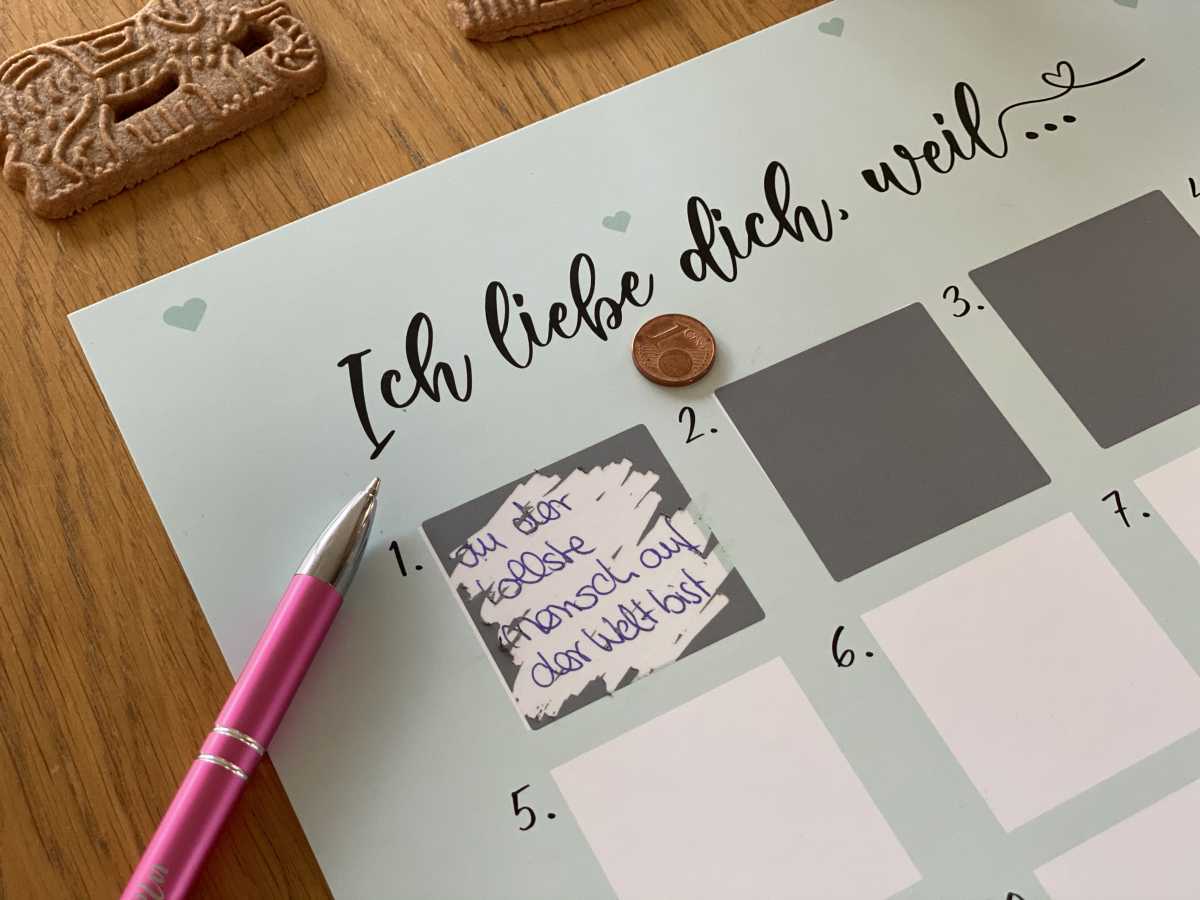 Ich liebe dich, weil...
1.
du der
tollste
mensch auf
der Welt bist
2.
3.
5.
6.
7.
1